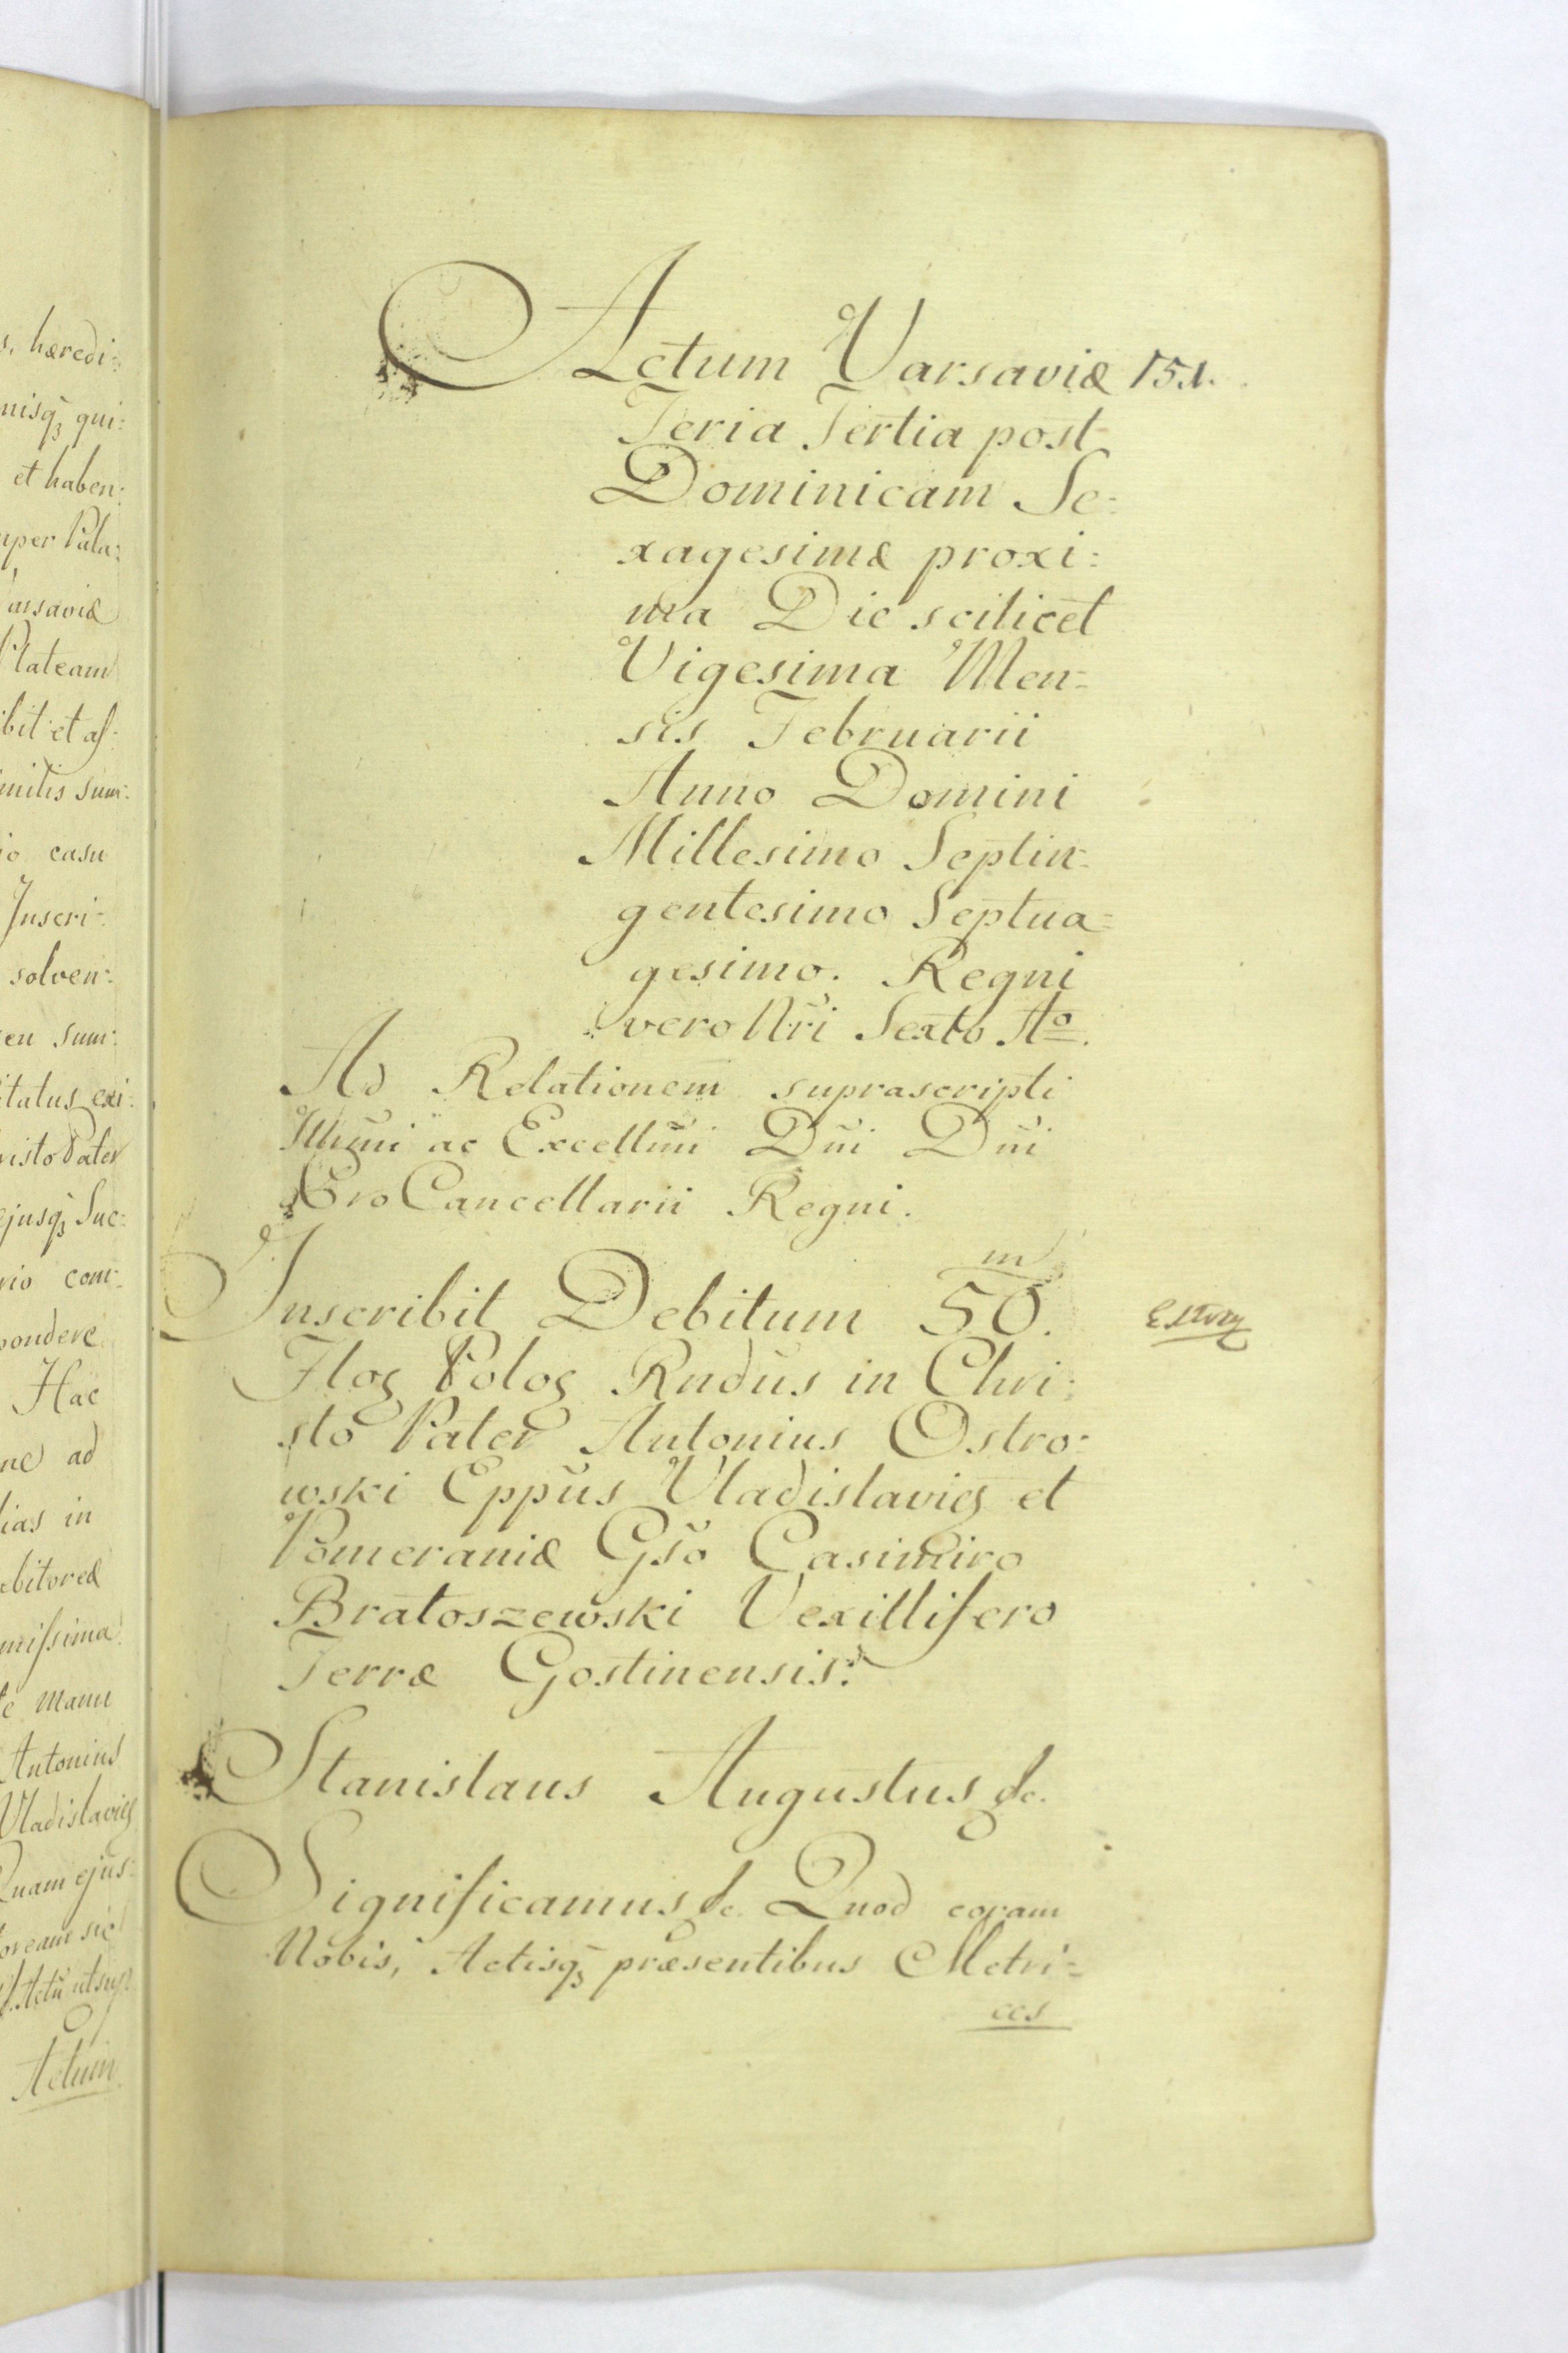 s, hæredi:
nisq̃ʒ qui:
et haben:
uper Pala:
arsaviæ
Plateam
ibit et aſ:
imilis Sum:
io casu
Inscri:
solven:
en Sum:
itatus exi:
risto Pater
ejusq̃ʒ Suc:
rio com:
pondere
Hac
ne ad
lias in
ebitoreæ
miſsima
te manu
Antonius
Vladislavieș
Quam ejus:
oream sic
Actũ ut sup
Actum
Actum Varsaviæ 151.
Feria Tertia post
Dominicam Se:
xagesimæ proxi:
ma Die scilicet
Vigesima Men:
sis Februarii
Anno Domini
Millesimo Septin:
gentesimo Septua:
gesimo. Regni
vero Nr̃i Sexto Aº.
Ad Relationem suprascripti
Illũmi ac Excellm̃i Dñi Dñi
Pro Cancellarii Regni.
Inscribit Debitum 50/m.
Floș Poloș Rndũs in Chri:
sto Pater Antonius Ostro:
wski Eppũs Vladislavieș et
Pomeraniæ Gs̃o Casimiro
Bratoszewski Vexillifero
Terræ Gostinensis.
Stanislaus Augustus &c.
Significamus &c. Quod coram
Nobis, Actisq̃ʒ præsentibus Metri:
ces